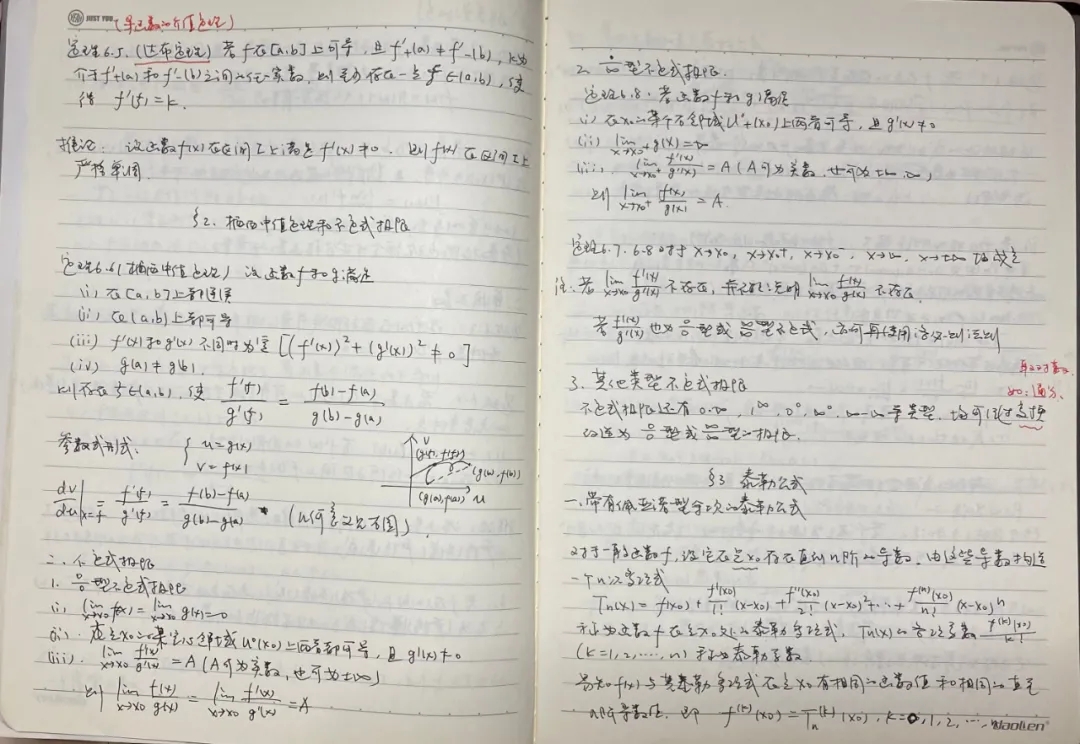 JUST YOU
(导函数的介值定理)
定理6.5.(达布定理) 若f在[a,b]上可导,且f'+(a)≠f'-(b),k为
介于f'+(a)和f'-(b)之间的任一实数,则至少存在一点ξ∈(a,b),使
得 f'(ξ)=k.
推论. 设函数f(x)在区间I上满足f'(x)≠0.则f(x)在区间I上
严格单调.
§2. 柯西中值定理和不定式极限
定理6.6(柯西中值定理) 设函数f和g满足
(i) 在[a,b]上都连续
(ii) 在(a,b)上都可导
(iii) f'(x)和g'(x)不同时为零 [(f'(x))²+(g'(x))²≠0]
(iv) g(a)≠g(b).
则存在ξ∈(a,b),使 f'(ξ)/g'(ξ) = (f(b)-f(a))/(g(b)-g(a))
参数式形式: { u=g(x)
v=f(x)
dv/du|x=ξ = f'(ξ)/g'(ξ) = (f(b)-f(a))/(g(b)-g(a))
v
(g(ξ),f(ξ))
(g(b),f(b))
(g(a),f(a))
u
二、不定式极限
1. 0/0型不定式极限
(i) lim x→x0 f(x)=lim x→x0 g(x)=0
(ii). 在点x0的某空心邻域U°(x0)上两者都可导,且g'(x)≠0
(iii). lim x→x0 f'(x)/g'(x) = A(A可为实数,也可为±∞)
则 lim x→x0 f(x)/g(x) = lim x→x0 f'(x)/g'(x) = A
2. ∞/∞型不定式极限.
定理6.8. 若函数f和g满足
(i) 在x0的某个右邻域U°+(x0)上两者可导,且g'(x)≠0
(ii) lim x→x0+ g(x)=∞
(iii). lim x→x0+ f'(x)/g'(x) = A(A可为实数,也可为±∞,∞)
则 lim x→x0+ f(x)/g(x) = A.
定理6.7、6.8对于x→x0, x→x0+, x→x0-, x→∞, x→±∞均成立
注:若 lim x→x0 f'(x)/g'(x) 不存在,并不能说明 lim x→x0 f(x)/g(x) 不存在.
若 f'(x)/g'(x) 也为0/0型或∞/∞型不定式,为可再使用洛必达法则
3. 其他类型不定式极限
∞-∞:通分、
不定式极限还有0·∞, 1^∞, 0^0, ∞^0, ∞-∞等类型,均可经过变换
改造为0/0型或∞/∞型的极限.
§3 泰勒公式
一、带有佩亚诺型余项的泰勒公式
对于一般函数f,设它在点x0存在直到n阶的导数,由这些导数构造
一个n次多项式
Tn(x) = f(x0) + f'(x0)/1! (x-x0) + f''(x0)/2! (x-x0)² + ... + f^(n)(x0)/n! (x-x0)^n
称为函数f在点x0处的泰勒多项式,Tn(x)的各项系数 f^(k)(x0)/k!
(k=1,2,...,n)称为泰勒系数.
易知f(x)与其泰勒多项式在点x0有相同的函数值和相同的直至
n阶导数值,即 f^(k)(x0)=Tn^(k)(x0), k=0,1,2,...